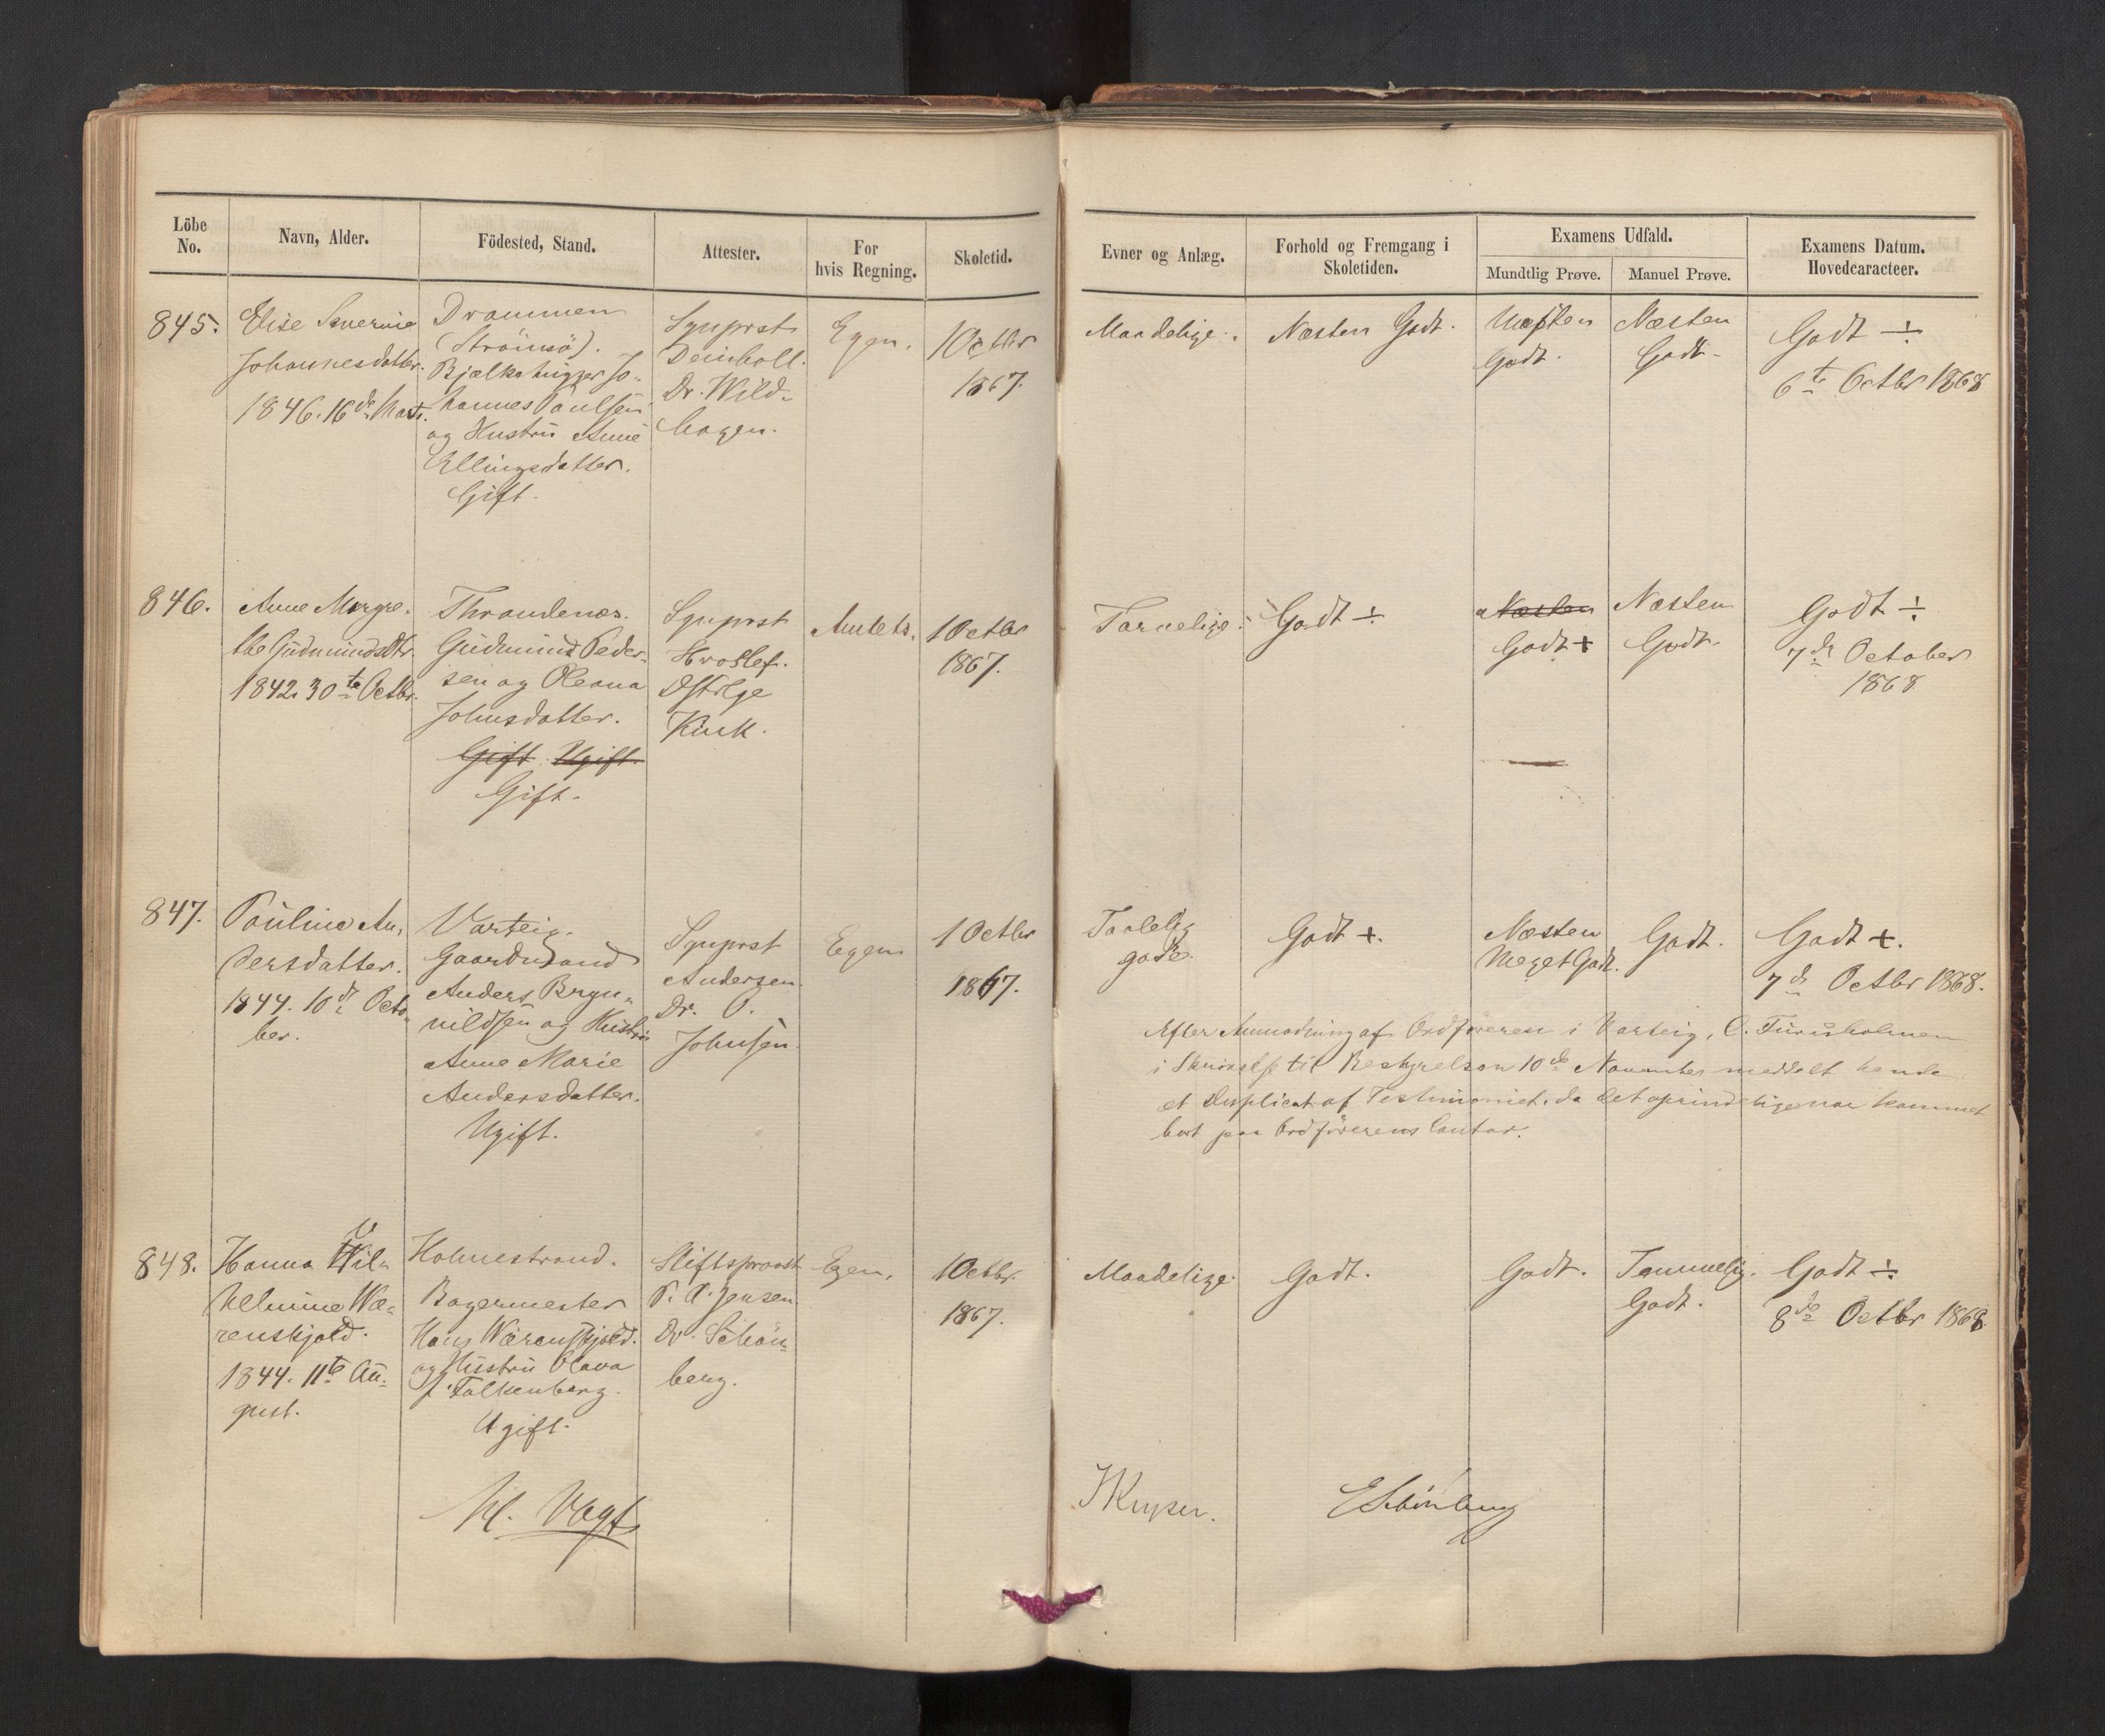 Löbe No.
Navn, Alder.
Födested, Stand.
Attester.
For hvis Regning.
Skoletid.
Evner og Anlæg.
Forhold og Fremgang i Skoletiden.
Examens Udfald.
Mundtlig Prøve.
Manuel Prøve.
Examens Datum. Hovedcaracteer.
845.
Elise Severine
Johannesdatter.
1846. 16de Marts.
Drammen
(Strömsö).
Bjælkehugger Jo-
hannes Paulsen
og Hustru Anne
Ellingsdatter.
Gift.
Sgnprst
Deinboll.
Dr. Wild-
hagen.
Egen.
1 Octbr
1867.
Maadelige.
Næsten Godt.
Næsten
Godt.
Næsten
Godt.
Godt ÷
6te Octbr 1868
846.
Anne Margre-
the Gudmundsdtr.
1842. 30te Octbr.
Throndenæs.
Gudmund Peder-
sen og Oleana
Johnsdatter.
Gift. Ugift.
Gift.
Sgnprst
Kink.
Amtets.
1 Octbr
1867.
Tarvelige.
Godt ÷
Næsten
Godt +
Næsten
Godt.
Godt ÷
7de October
1868
847.
Pauline An-
dersdatter.
1844. 10de Octo-
ber.
Varteig.
Gaardmand
Anders Bryn-
nildsen og Hustru
Anne Marie
Andersdatter.
Ugift.
Sgnprst
Andersen.
Dr. O.
Johnsen.
Egen
1 Octbr
1867.
Taalelig
gode.
Godt +.
Næsten
Meget Godt.
Godt.
Godt +.
7de Octbr 1868.
Efter Anmodning af Ordföreren i Varteig, C. Furuholmen
i Skrivelse til Bestyrelsen 10de November meddelt hende
et Duplicat af Testimoniet, da det oprindelige var kommet
bort paa Ordförerens Contor.
848.
Hanna Wil-
helmine Wæ-
renskjold.
1844. 11te Au-
gust.
Holmestrand.
Bagermester
Hans Wærenskjold.
og Hustru Olava
f. Falkenberg.
Ugift.
Stiftsprovst
P. A. Jensen
Dr. Schön-
berg.
Egen.
1 Octbr.
1867.
Maadelige.
Godt.
Godt.
Temmelig
Godt.
Godt ÷
8de Octbr 1868.
M. Vogt
J Keyser.
E Schönberg